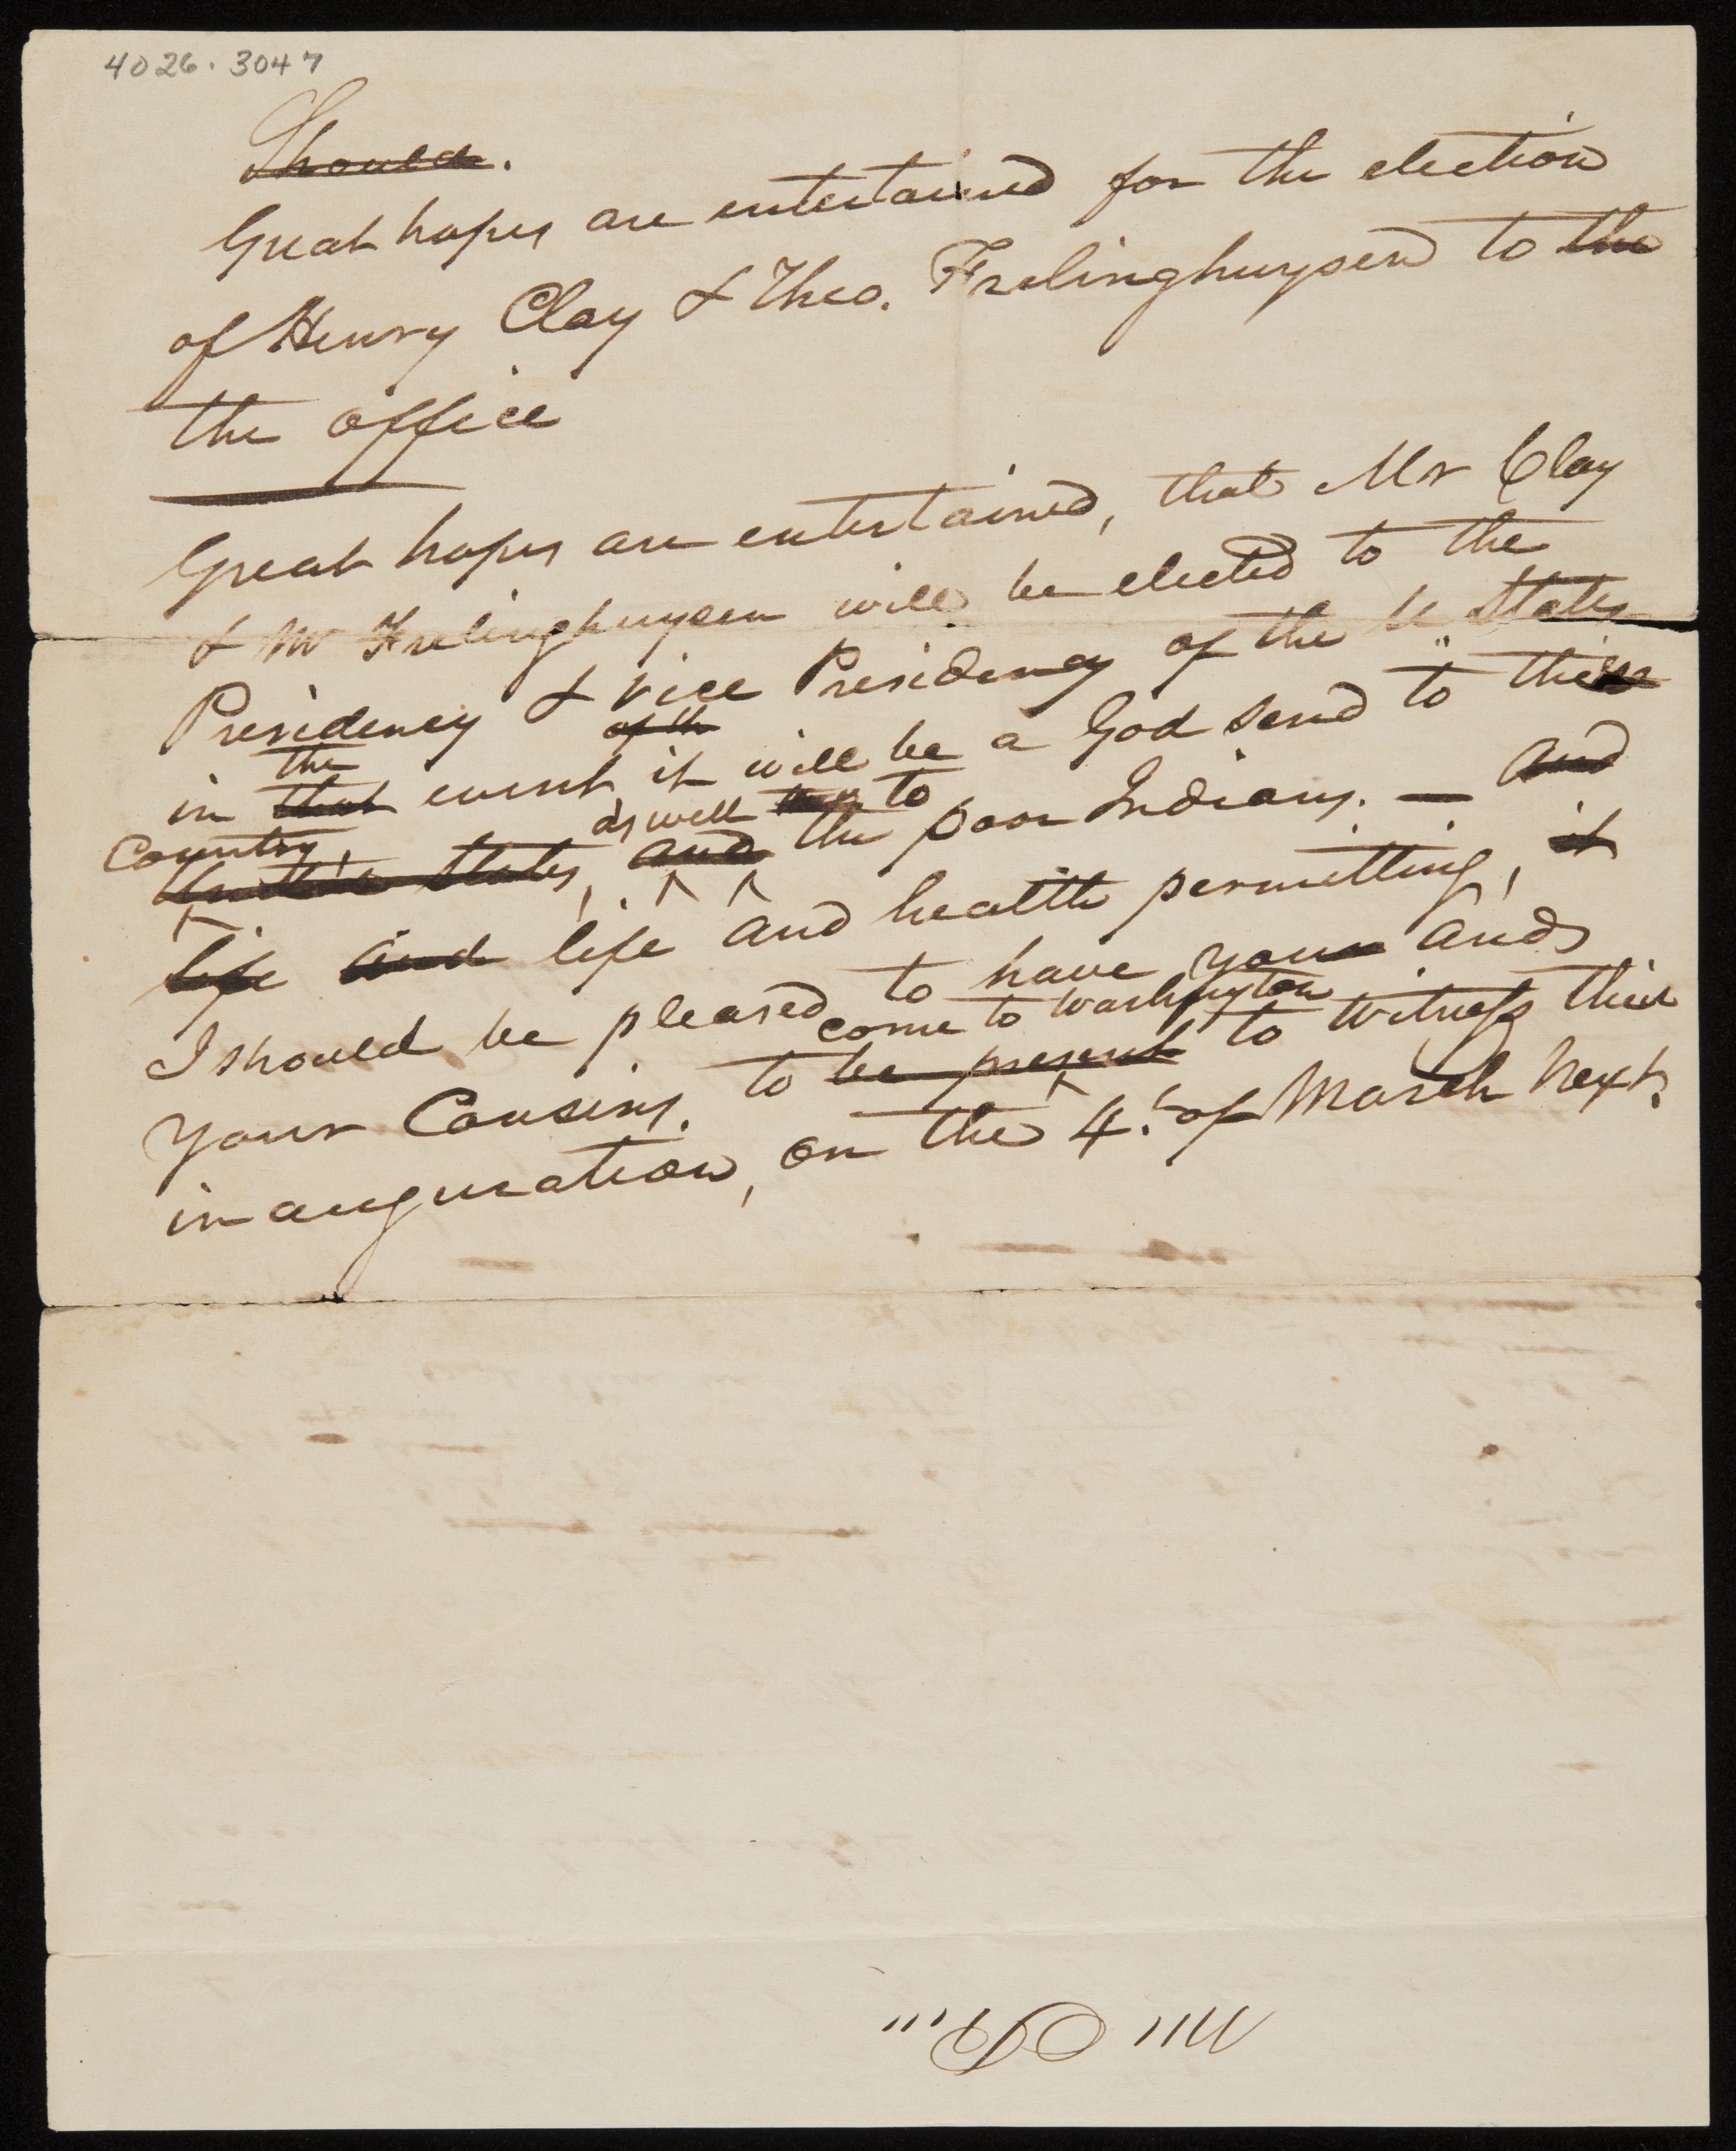 4026.3047
Should.
Great hopes are entertained for the election
of Henry Clay & Theo. Frelinghuysen to the
the office
Great hopes are entertained, that Mr Clay
& Mr Frelinghuysen will be elected to the
Presidency & vice Presidency of the U. States
of th
the
in that event it will be a God send to this
Country, as well to
United States, and the poor Indians. — and
life and life and health permitting, it
I should be pleased to have you and
come to Washington
your Cousins. to be present to witness their
inauguration, on the 4th of March next.